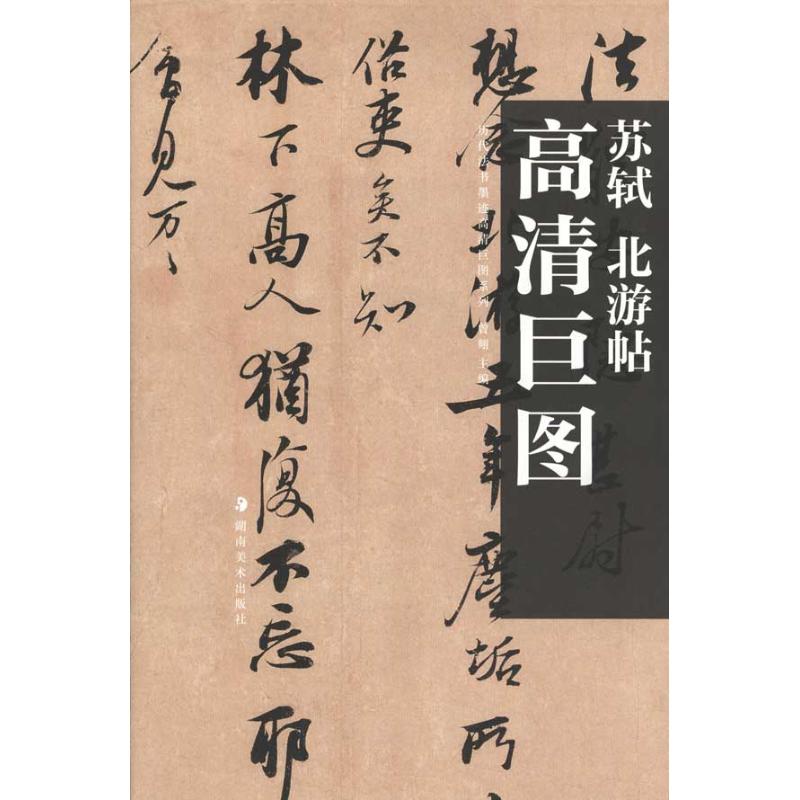 苏轼 北游帖
高清巨图
历代法书墨迹高清巨图系列 曾翔 主编
法 甚慰
想念北游五年塵垢所
俗吏矣不知
林下高人猶復不忘耶
會見万〻
湖南美术出版社